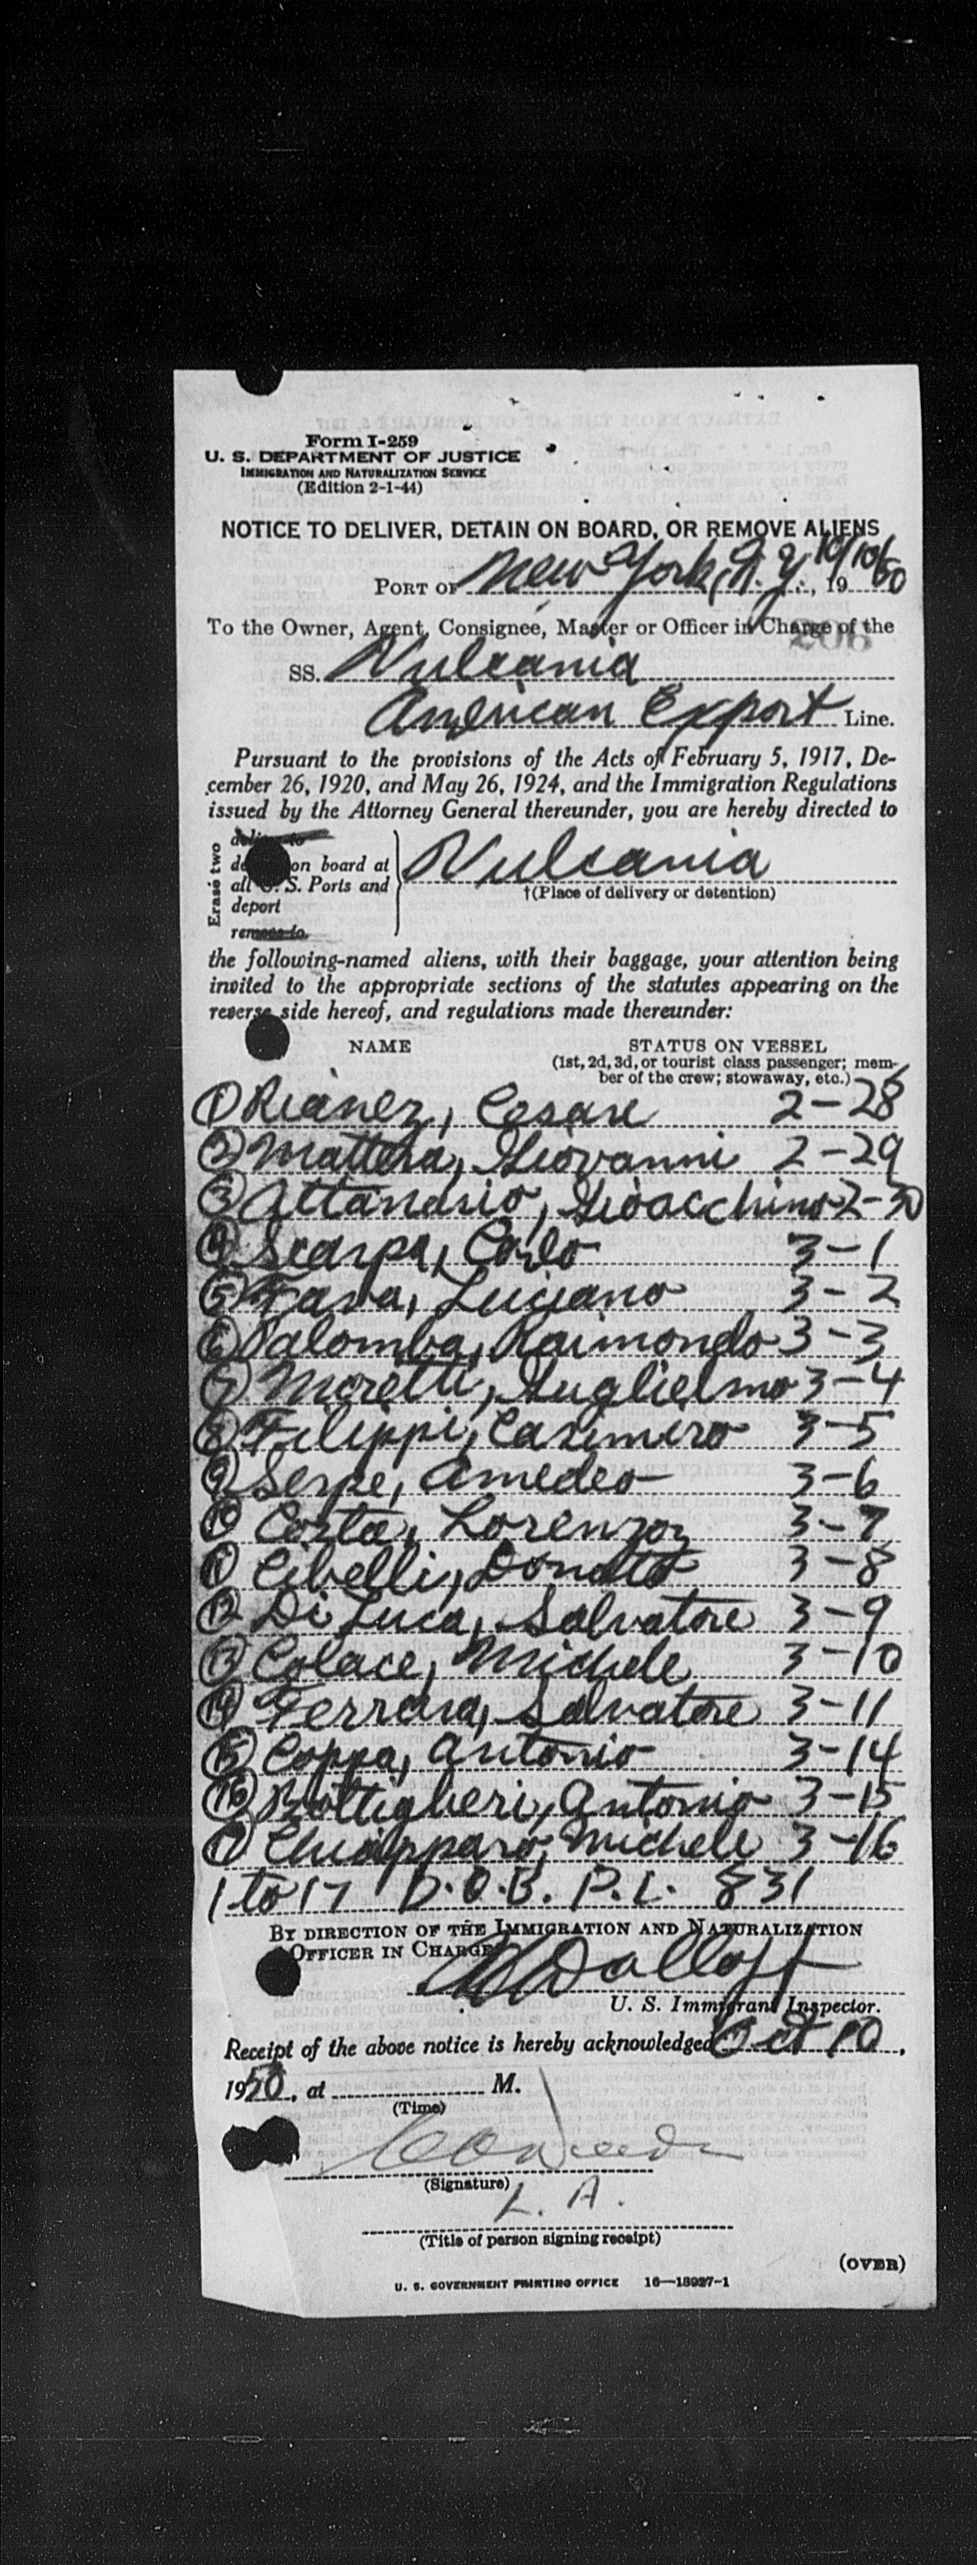 Form I-259
U. S. DEPARTMENT OF JUSTICE
IMMIGRATION AND NATURALIZATION SERVICE
(Edition 2-1-44)
NOTICE TO DELIVER, DETAIN ON BOARD, OR REMOVE ALIENS
PORT OF New York, N.Y. 10/10, 1950
To the Owner, Agent, Consignee, Master or Officer in Charge of the
206
SS. Vulcania
American Export Line.
Pursuant to the provisions of the Acts of February 5, 1917, De-
cember 26, 1920, and May 26, 1924, and the Immigration Regulations
issued by the Attorney General thereunder, you are hereby directed to
Erase two
deliver to
on board at
all U. S. Ports and
deport
remove to
Vulcania
†(Place of delivery or detention)
the following-named aliens, with their baggage, your attention being
invited to the appropriate sections of the statutes appearing on the
reverse side hereof, and regulations made thereunder:
NAME STATUS ON VESSEL
(1st, 2d, 3d, or tourist class passenger; mem-
ber of the crew; stowaway, etc.)
1 Rianez, Cesare 2-28
2 Mattera, Giovanni 2-29
3 Attanasio, Gioacchino 2-30
4 Scarpa, Carlo 3-1
5 Fava, Luciano 3-2
6 Palomba, Raimondo 3-3
7 Moretti, Guglielmo 3-4
8 Filippi, Casimiro 3-5
9 Serpe, Amedeo 3-6
10 Costa, Lorenzo 3-7
11 Cibelli, Donato 3-8
12 Di Luca, Salvatore 3-9
13 Colace, Michele 3-10
14 Ferrara, Salvatore 3-11
15 Coppa, Antonio 3-14
16 Bottiglieri, Antonio 3-15
17 Chiapparo, Michele 3-16
1 to 17 D.O.B. P.L. 831
BY DIRECTION OF THE IMMIGRATION AND NATURALIZATION
OFFICER IN CHARGE
U. S. Immigrant Inspector.
Receipt of the above notice is hereby acknowledged Oct 10,
1950, at M.
(Time)
(Signature)
L. A.
(Title of person signing receipt)
(OVER)
U. S. GOVERNMENT PRINTING OFFICE 16—18927-1